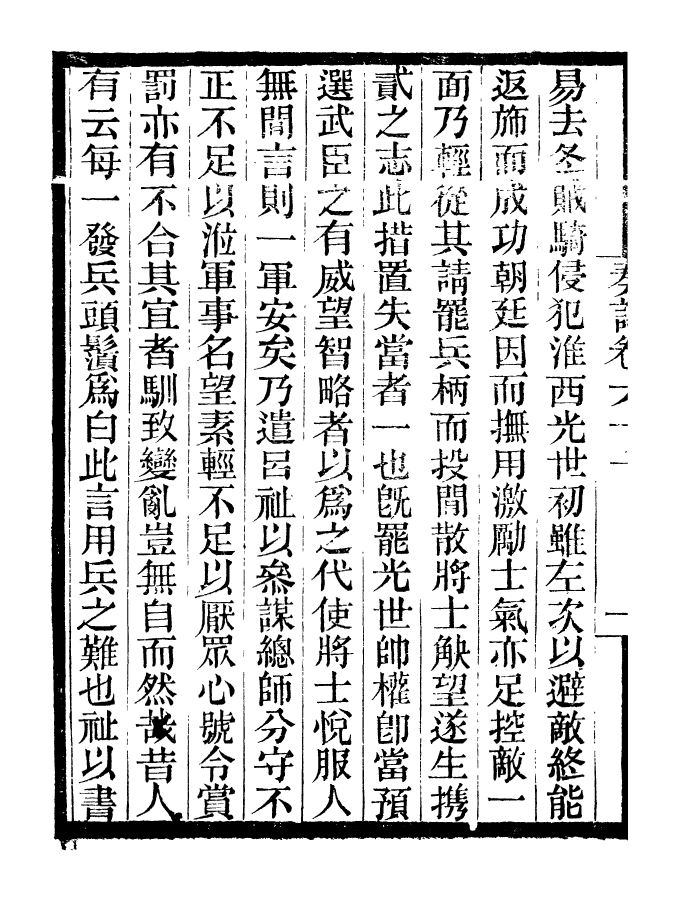 奏議卷六十一
易去冬賊騎侵犯淮西光世初雖左次以避敵終能
返旆而成功朝廷因而撫用激勵士氣亦足控敵一
面乃輕從其請罷兵柄而投閒散將士觖望遂生攜
貳之志此措置失當者一也旣罷光世帥權卽當預
選武臣之有威望智略者以爲之代使將士悅服人
無閒言則一軍安矣乃遣呂祉以叅謀總師分守不
正不足以涖軍事名望素輕不足以厭眾心號令賞
罰亦有不合其宜者馴致變亂豈無自而然哉昔人
有云每一發兵頭鬚爲白此言用兵之難也祉以書